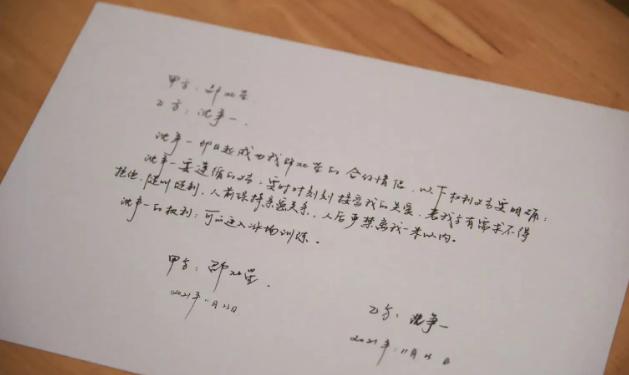 甲方：邵北星
乙方：沈争一
沈争一即日起成为我邵北星的合约情侣，以下权利义务要明确：
沈争一要遵循的义务：要时时刻刻接受我的关爱，若我有需求不得
拒绝，随叫随到，人前保持亲密关系，人后严禁离我一米以内。
沈争一的权利：可以进入冰场训练。
甲方：邵北星
2021年11月23日
乙方：沈争一
2021年11月23日